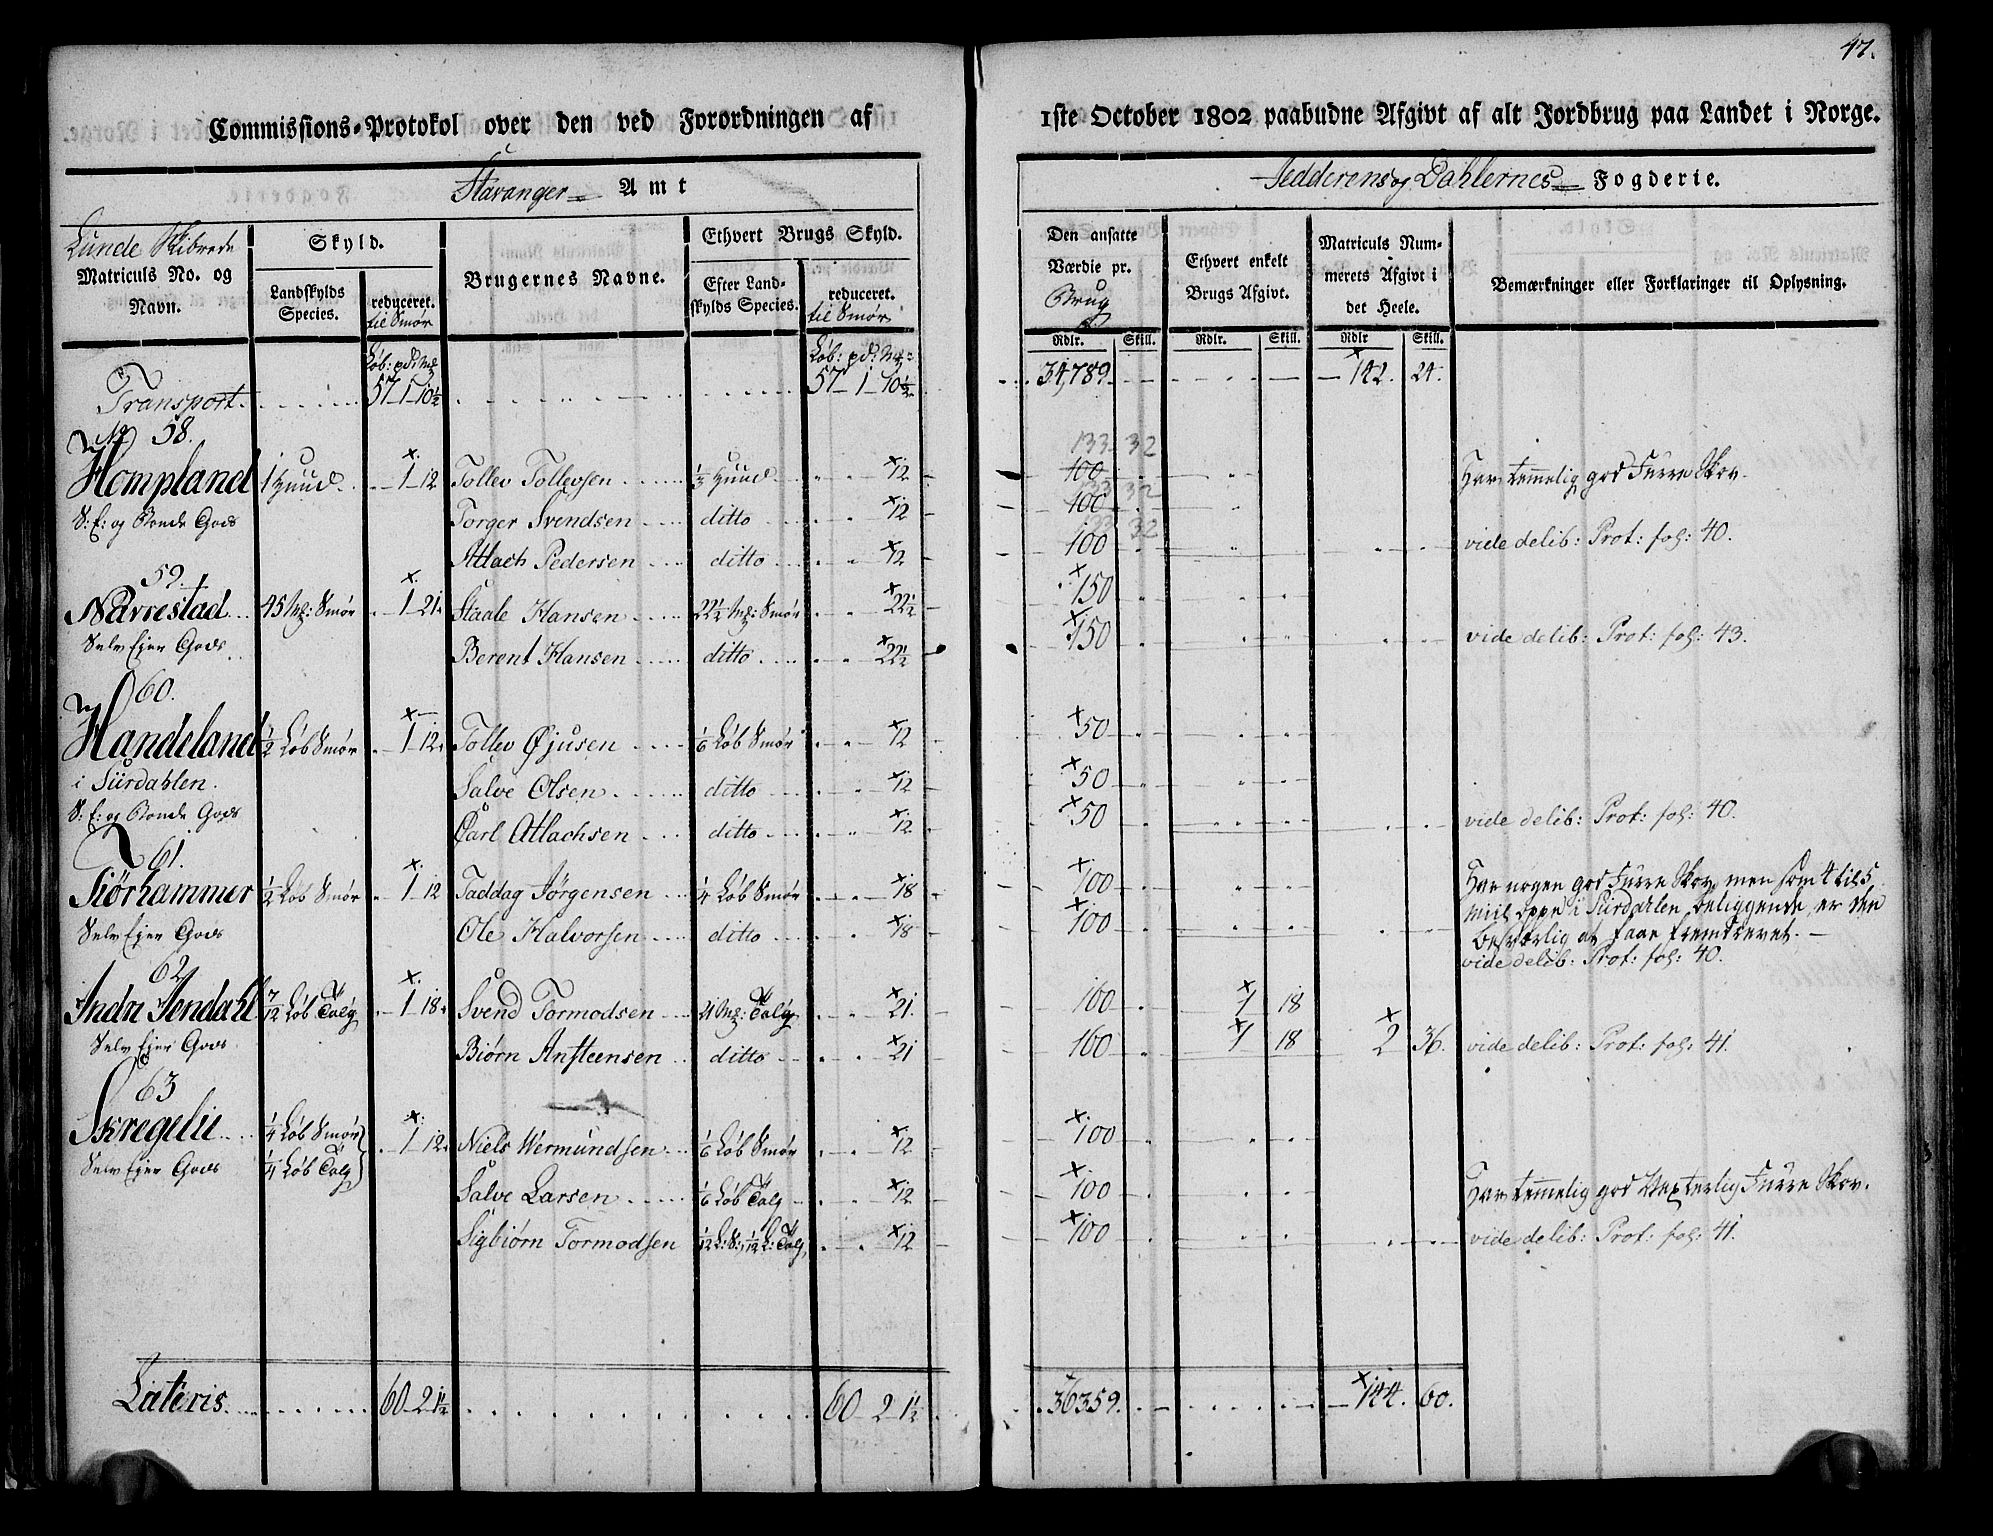 47.
Commissions-Protokol over den ved Forordningen af 1ste October 1802 paabudne Afgivt af alt Jordbrug paa Landet i Norge.
Stavanger Amt
Jedderens og Dahlernes Fogderie.
Lunde Skibrede
Matriculs No. og Navn.
Skyld.
Landskylds Species.
reduceret. til Smør
Brugernes Navne.
Ethvert Brugs Skyld.
Efter Landskylds Species.
reduceret. til Smør
Den ansatte Værdie pr. Brug
Ethvert enkelt Brugs Afgivt.
Matriculs Nummerets Afgivt i det Heele.
Bemærkninger eller Forklaringer til Oplysning.
Løb: pd: Mrk
Løb: pd: Mrk:
Rdlr. Skill. Rdlr. Skill. Rdlr Skill.
Transport 57-1-10½ 57-1-10½ 34,789 142. 24.
No 58.
133 32
Hompland 1 Huud 1-12 Tollev Tollevsen ⅓ Huud 12 100 Har temmelig god Furre Skov.
133 32
S: E: og Bonde Gods Torger Svendsen ditto 12 100
133 32
Atlach Pedersen ditto 12 100 vide delib: Prot: fol: 40.
59.
Nævrestad 45 Mrk: Smør 1-21 Staale Hansen 22½ Mrk: Smør 22½ 150
Selv Ejer Gods Berent Hansen ditto 22½ 150 vide delib: Prot: fol: 43.
60.
Handeland ½ Løb Smør 1-12 Tollev Øjusen 1/6 Løb Smør 12 50
i Siirdahlen. Salve Olsen ditto 12 50
S: E: og Bonde Gods Carl Atlachsen ditto 12 50 vide delib: Prot: fol: 40.
61.
Tiørhammer ½ Løb Smør 1-12 Taddag Jørgensen ¼ Løb Smør 18 100 Har nogen god Furre Skov, men som 4 til 5
Selv Ejer Gods Ole Halvorsen ditto 18 100 Miil oppe i Siirdahlen beliggende, er den
besværlig at faae fremdrevet.
vide delib: Prot: fol: 40.
62.
Indre Jendahl 7/12 Løb Talg 1-18 Svend Tormodsen 21 Mrk: Talg 21. 160 1 18
Selv Ejer Gods Biørn Ansteensen ditto 21 160 1 18 2 36. vide delib: Prot: fol: 41.
63
Skregelie ¼ Løb Smør 1-12 Niels Wermundsen 1/6 Løb Smør 12 100
Selv Ejer Gods ¼ Løb Talg
Salve Larsen 1/6 Løb Talg 12 100 Har temmelig god Vexterlig Furre Skov.
Sigbiørn Tormodsen 1/12 L: S:, 1/12 L: Talg 12 100 vide delib: Prot: fol: 41.
Lateris 60-2-1½ 60-2-1½ 36359. 144. 60.